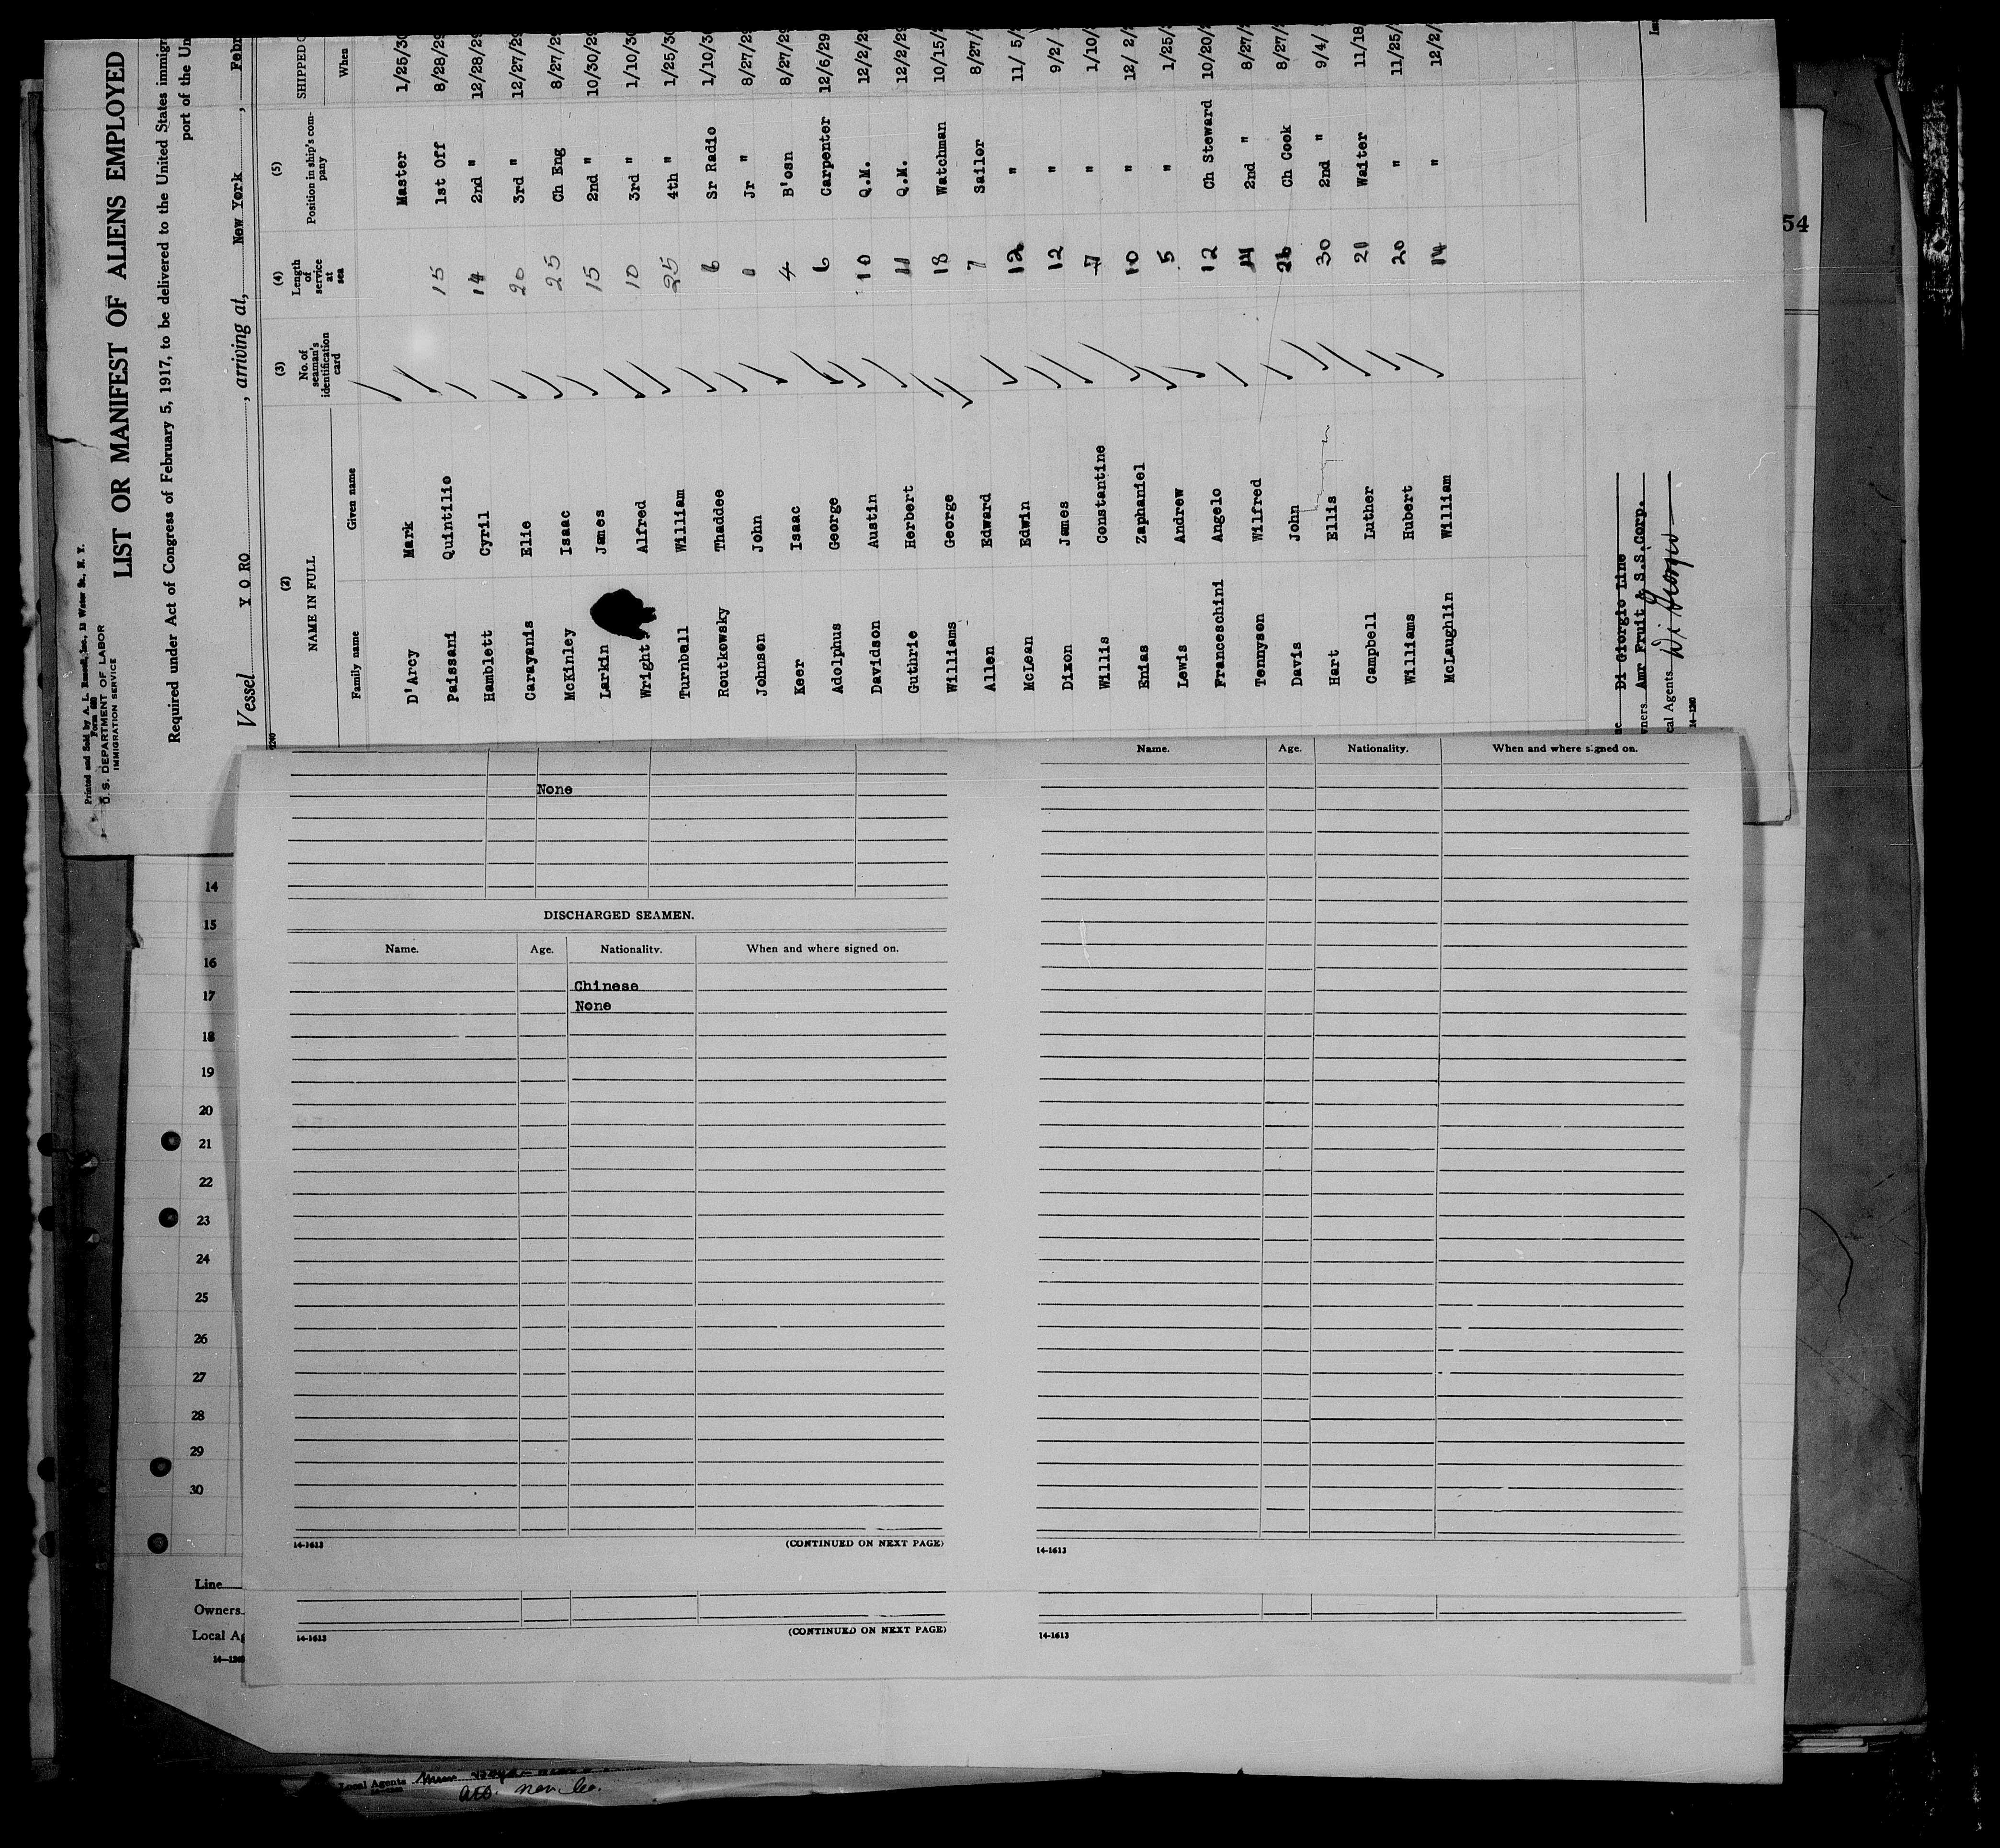 Printed and Sold by A. L. Russell, Inc., 13 Water St., N. Y.
U. S. DEPARTMENT OF LABOR
IMMIGRATION SERVICE
LIST OR MANIFEST OF ALIENS EMPLOYED
Required under Act of Congress of February 5, 1917, to be delivered to the United States immigr
port of the Un
Vessel Y O RO , arriving at, New York , Febr
(2) (3) (4) (5)
NAME IN FULL No. of seaman's identification card Length of service at sea Position in ship's company SHIPPED O
Family name Given name When
D'Arcy Mark Master 1/25/30
Paissani Quintilio 15 1st Off 8/28/29
Hamblett Cyril 14 2nd " 12/28/29
Carayanis Elie 20 3rd " 12/27/29
McKinley Isaac 25 Ch Eng 8/27/29
Larkin James 15 2nd " 10/30/29
Wright Alfred 10 3rd " 1/10/30
Turnbull William 25 4th " 1/25/30
Routkowsky Thaddee 6 Sr Radio 1/10/30
Johnson John Jr " 8/27/29
Keer Isaac 4 B'osn 8/27/29
Adolphus George 6 Carpenter 12/6/29
Davidson Austin 10 Q.M. 12/2/29
Guthrie Herbert 11 Q.M. 12/2/29
Williams George 18 Watchman 10/15/
Allen Edward 7 Sailor 8/27/
McLean Edwin 12 " 11/ 5/
Dixon James 12 " 9/2/
Willis Constantine 7 " 1/10/
Enias Zaphaniel 10 " 12/ 2/
Lewis Andrew 5 " 1/25/
Franceschini Angelo 12 Ch Steward 10/20/
Tennyson Wilfred 14 2nd " 8/27/
Davis John 26 Ch Cook 8/27/
Hart Ellis 30 2nd " 9/4/
Campbell Luther 20 Waiter 11/18
Williams Hubert 20 " 11/25/
McLaughlin William 14 " 12/2/
ne Di Giorgio Line
wners Amr Fruit & S.S.Corp.
cal Agents Di Giorgio
14-1240
54
None
DISCHARGED SEAMEN.
Name. Age. Nationality. When and where signed on.
Chinese
None
14-1613 (CONTINUED ON NEXT PAGE)
14-1613 (CONTINUED ON NEXT PAGE)
Name. Age. Nationality. When and where signed on.
14-1613
14-1613
14
15
16
17
18
19
20
21
22
23
24
25
26
27
28
29
30
Line
Owners
Local Ag
Local Agents